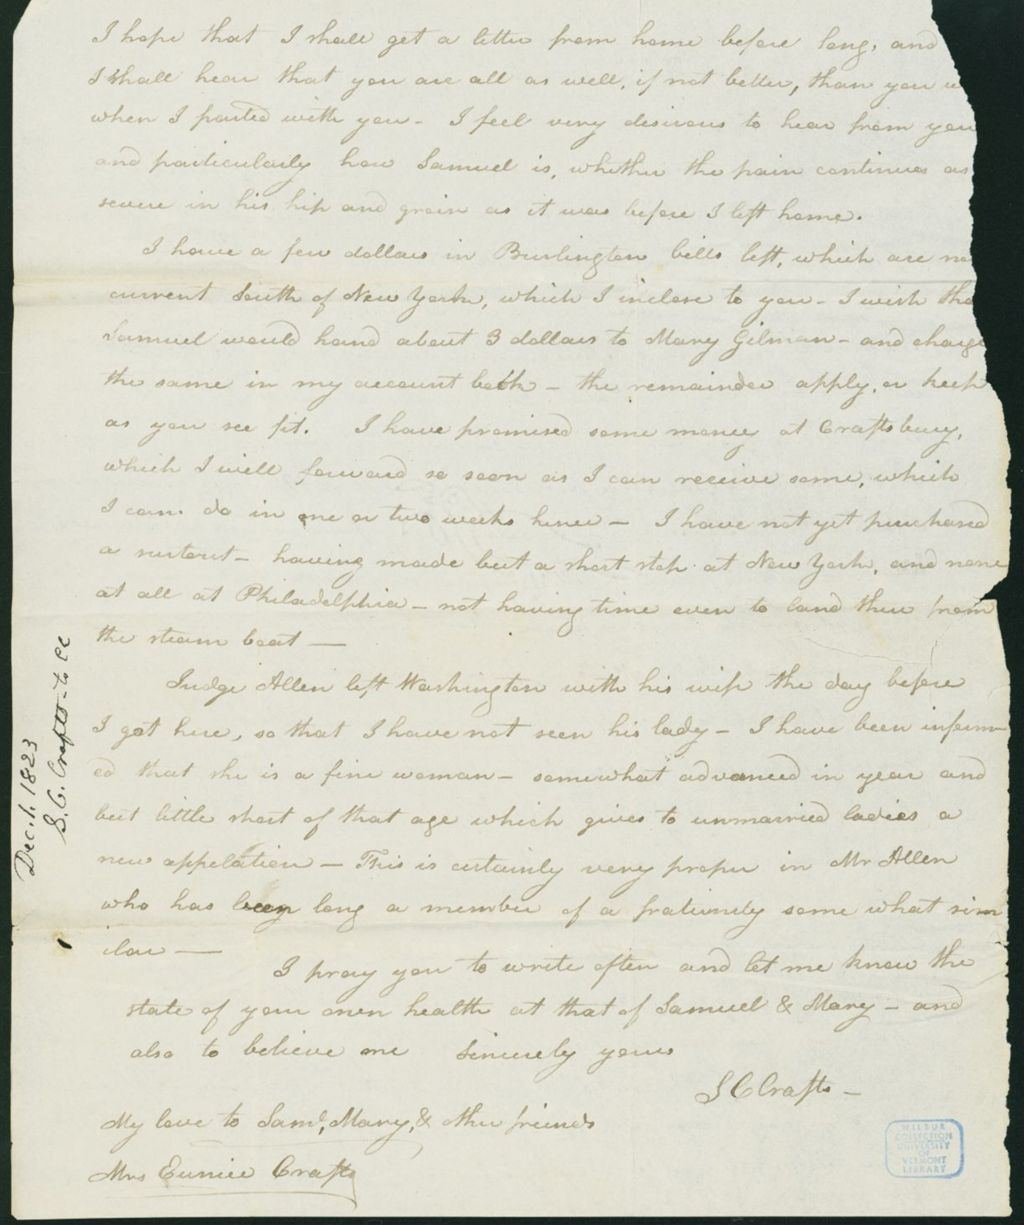 I hope that I shall get a letter from home before long, and
I shall hear that you are all as well, if not better, than you w
when I parted with you - I feel very desirous to hear from you
and particularly how Samuel is, whether the pain continues as
severe in his hip and groin as it was before I left home.
I have a few dollars in Burlington bills left, which are no
current South of New York, which I inclose to you - I wish tha
Samuel would hand about 3 dollars to Mary Gilman - and charge
the same in my account book - the remainder apply, or keep
as you see fit. I have promised some money at Craftsbury,
which I will forward so soon as I can receive some, which
I can do in one or two weeks hence - I have not yet purchased
a surtout - having made but a short stop at New York, and none
at all at Philadelphia - not having time even to land there from
the steam boat -
Judge Allen left Washington with his wife the day before
I got here, so that I have not seen his lady - I have been inform
ed that she is a fine woman - somewhat advanced in year and
but little short of that age which gives to unmarried ladies a
new appelation - This is certainly very proper in Mr Allen
who has been long a member of a fraternity some what sim
ilar -
I pray you to write often and let me know the
state of your own health at that of Samuel & Mary - and
also to believe me sincerely yours
S C Crafts -
My love to Saml, Mary, & other friends
Mrs Eunice Crafts
Dec. 1. 1823
S. C. Crafts - to EC
WILBUR
COLLECTION
UNIVERSITY
OF
VERMONT
LIBRARY